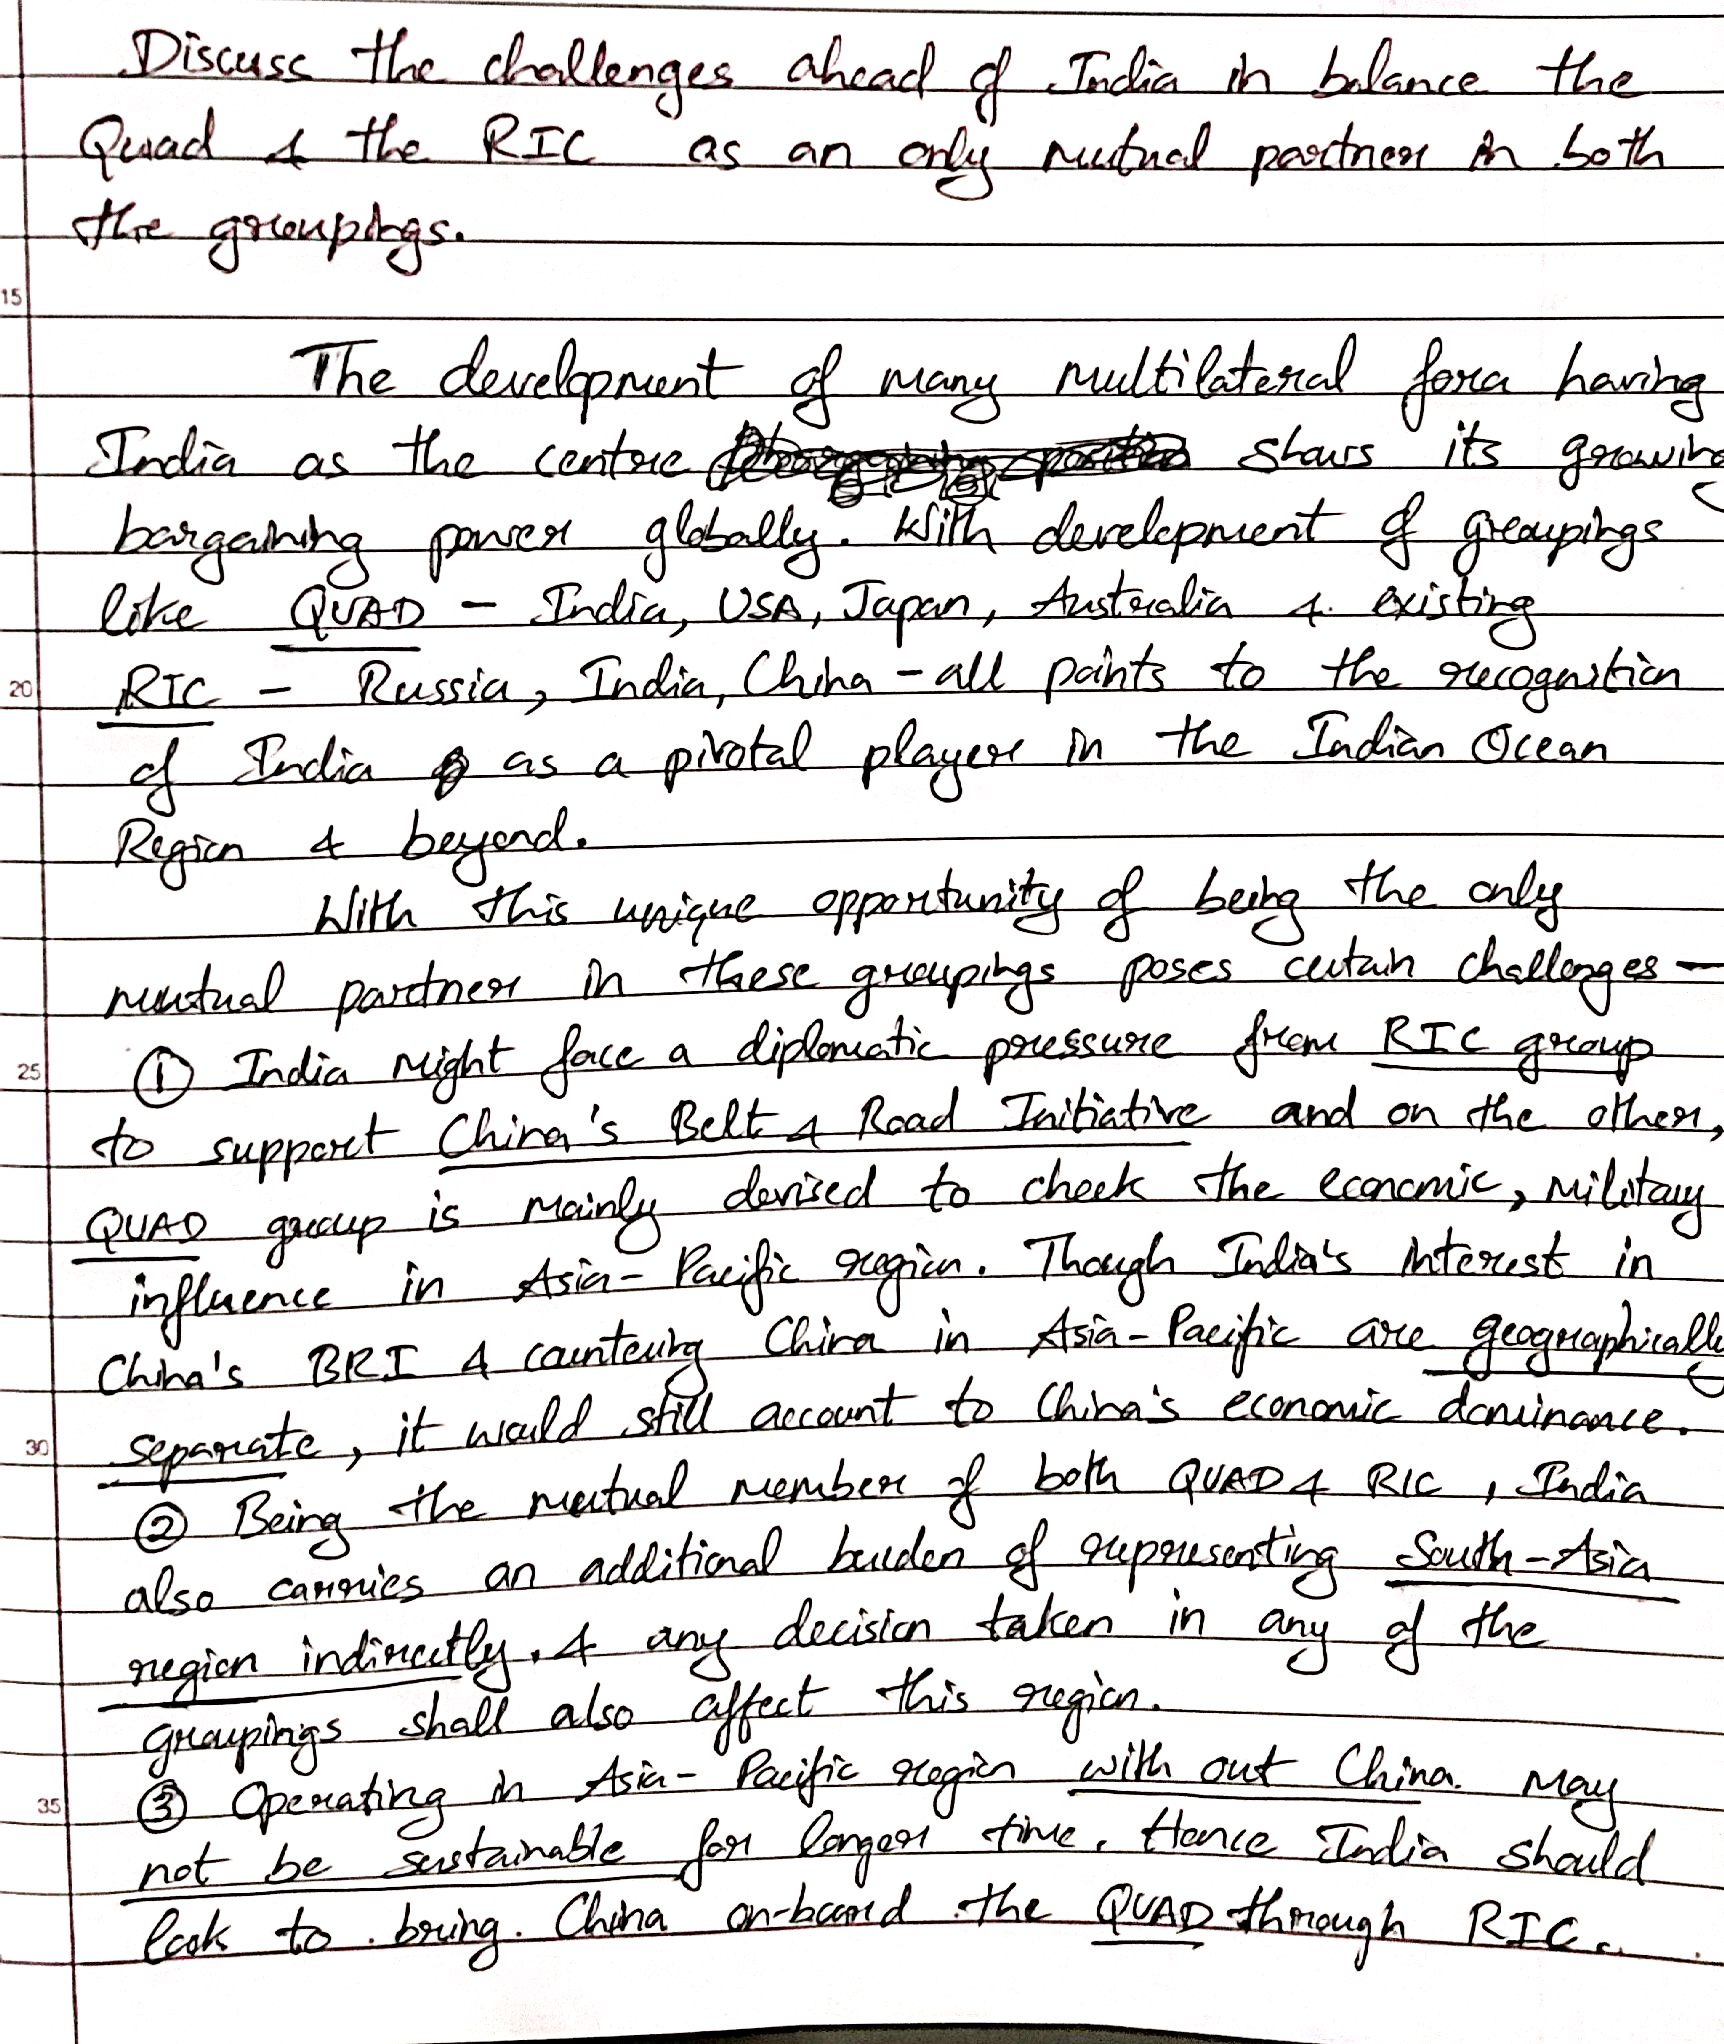 Discuss the challenges ahead of India in balance the
Quad & the RIC as an only mutual partner in both
the groupings.
15
The development of many multilateral fora having
India as the centre shows its growing
bargaining power globally. With development of groupings
like QUAD - India, USA, Japan, Australia & existing
20 RIC - Russia, India, China - all points to the recognition
of India as a pivotal player in the Indian Ocean
Region & beyond.
With this unique opportunity of being the only
mutual partner in these groupings poses certain challenges -
25 ① India might face a diplomatic pressure from RIC group
to support China's Belt & Road Initiative and on the other,
QUAD group is mainly devised to check the economic, military
influence in Asia-Pacific region. Though India's interest in
China's BRI & countering China in Asia-Pacific are geographically
30 separate, it would still account to China's economic dominance.
② Being the mutual member of both QUAD & RIC, India
also carries an additional burden of representing South-Asia
region indirectly. & any decision taken in any of the
groupings shall also affect this region.
35 ③ Operating in Asia-Pacific region with out China may
not be sustainable for longer time. Hence India should
look to bring China on-board the QUAD through RIC.